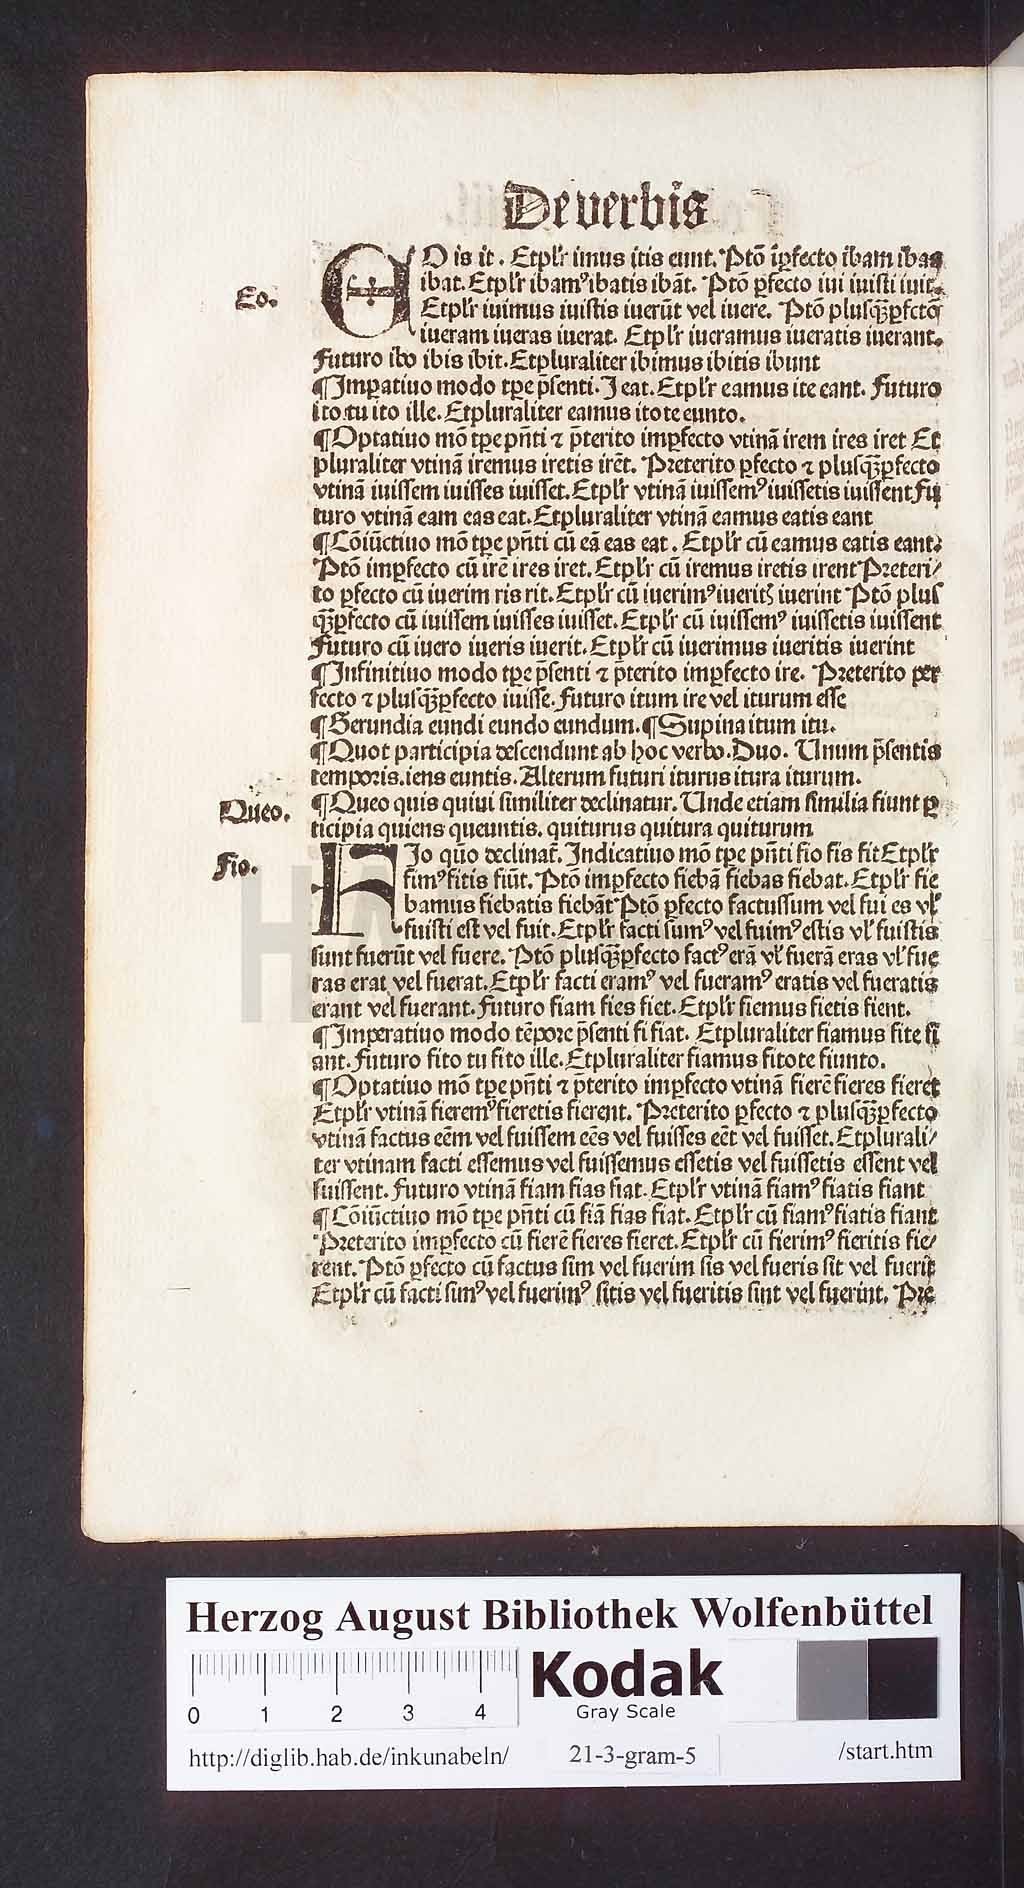 De verbis
Eo.
EO is it. Et plr̄ imus itis eunt. Ptō ip̄fecto ibam ibas
ibat. Et plr̄ ibamꝰ ibatis ibāt. Ptō ꝑfecto iui iuisti iuit.
Et plr̄ iuimus iuistis iuerūt vel iuere. Ptō plusqꝫꝑfcto
iueram iueras iuerat. Et plr̄ iueramus iueratis iuerant.
Futuro ibo ibis ibit. Et pluraliter ibimus ibitis ibunt
¶Imꝑatiuo modo tꝑe p̄senti. I eat. Et plr̄ eamus ite eant. Futuro
ito tu ito ille. Et pluraliter eamus itote eunto.
¶Optatiuo mō tꝑe pn̄ti ⁊ p̄terito imꝑfecto vtinā irem ires iret Et
pluraliter vtinā iremus iretis irēt. Preterito ꝑfecto ⁊ plusqꝫꝑfecto
vtinā iuissem iuisses iuisset. Et plr̄ vtinā iuissemꝰ iuissetis iuissent Fu
turo vtinā eam eas eat. Et pluraliter vtinā eamus eatis eant
¶Cōiūctiuo mō tꝑe pn̄ti cū eā eas eat. Et plr̄ cū eamus eatis eant.
Ptō imꝑfecto cū irē ires iret. Et plr̄ cū iremus iretis irent Preteri/
to ꝑfecto cū iuerim ris rit. Et plr̄ cū iuerimꝰ iueritꝭ iuerint Ptō plus
qꝫꝑfecto cū iuissem iuisses iuisset. Et plr̄ cū iuissemꝰ iuissetis iuissent
Futuro cū iuero iueris iuerit. Et plr̄ cū iuerimus iueritis iuerint
¶Infinitiuo modo tꝑe p̄senti ⁊ p̄terito imꝑfecto ire. Preterito per
fecto ⁊ plusqꝫꝑfecto iuisse. Futuro itum ire vel iturum esse
¶Gerundia eundi eundo eundum. ¶Supina itum itu.
¶Quot participia descendunt ab hoc verbo. Duo. Unum p̄sentis
temporis. iens euntis. Alterum futuri iturus itura iturum.
Queo.
¶Queo quis quiui similiter declinatur. Unde etiam similia fiunt ꝑ
ticipia quiens queuntis. quiturus quitura quiturum
Fio.
FIo quō declinat̄. Indicatiuo mō tꝑe pn̄ti fio fis fit Et plr̄
fimꝰ fitis fiūt. Ptō imꝑfecto fiebā fiebas fiebat. Et plr̄ fie
bamus fiebatis fiebāt Ptō ꝑfecto factussum vel fui es vl̓
fuisti est vel fuit. Et plr̄ facti sumꝰ vel fuimꝰ estis vl̓ fuistis
sunt fuerūt vel fuere. Ptō plusqꝫꝑfecto factꝰ erā vl̓ fuerā eras vl̓ fue
ras erat vel fuerat. Et plr̄ facti eramꝰ vel fueramꝰ eratis vel fueratis
erant vel fuerant. Futuro fiam fies fiet. Et plr̄ fiemus fietis fient.
¶Imperatiuo modo tēpore p̄senti fi fiat. Et pluraliter fiamus fite fi
ant. Futuro fito tu fito ille. Et pluraliter fiamus fitote fiunto.
¶Optatiuo mō tꝑe pn̄ti ⁊ p̄terito imꝑfecto vtinā fierē fieres fieret
Et plr̄ vtinā fieremꝰ fieretis fierent. Preterito ꝑfecto ⁊ plusqꝫꝑfecto
vtinā factus eēm vel fuissem eēs vel fuisses eēt vel fuisset. Et plurali/
ter vtinam facti essemus vel fuissemus essetis vel fuissetis essent vel
fuissent. Futuro vtinā fiam fias fiat. Et plr̄ vtinā fiamꝰ fiatis fiant
¶Cōiūctiuo mō tꝑe pn̄ti cū fiā fias fiat. Et plr̄ cū fiamꝰ fiatis fiant
Preterito imꝑfecto cū fierē fieres fieret. Et plr̄ cū fierimꝰ fieritis fie/
rent. Ptō ꝑfecto cū factus sim vel fuerim sis vel fueris sit vel fuerit
Et plr̄ cū facti simꝰ vel fuerimꝰ sitis vel fueritis sint vel fuerint. Pre
HAB
Herzog August Bibliothek Wolfenbüttel
0 1 2 3 4
Kodak
Gray Scale
http://diglib.hab.de/inkunabeln/ 21-3-gram-5 /start.htm